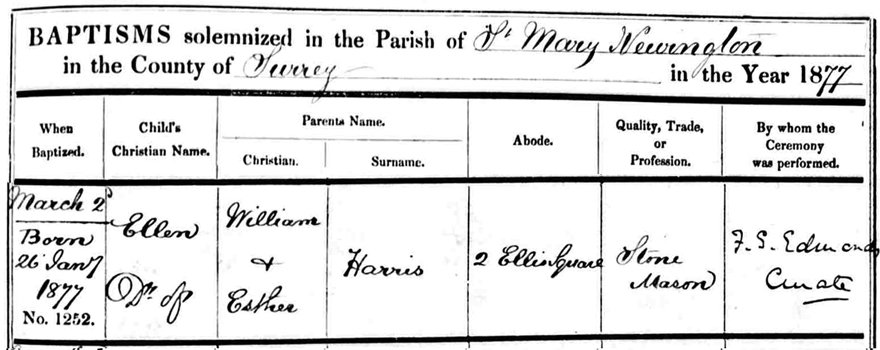 BAPTISMS solemnized in the Parish of St Mary Newington
in the County of Surrey in the Year 1877
When Baptized.
Child's Christian Name.
Parents Name.
Christian.
Surname.
Abode.
Quality, Trade, or Profession.
By whom the Ceremony was performed.
March 2
Born
26 Jany
1877
No. 1252.
Ellen
Dr of
William
&
Esther
Harris
2 Ellis Square
Stone
Mason
Edmonds
Curate